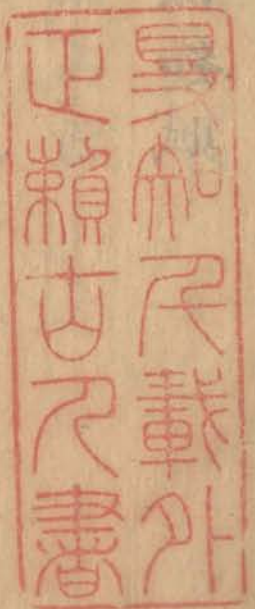 㝵知千載外
正賴古人書